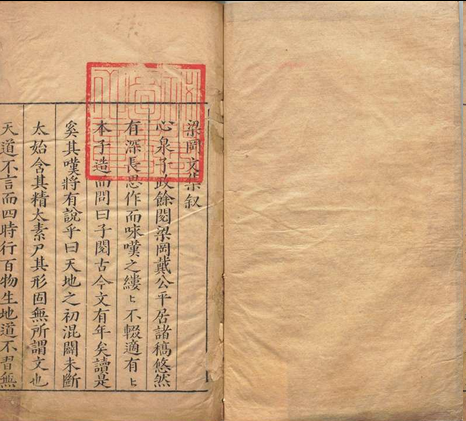 梁岡文集叙
心泉子政餘閱梁岡戴公平居諸稿悠然
有深長思作而咏嘆之縷〻不輟適有〻
本子造而問曰子閱古今文有年矣讀是
奚其嘆將有說乎曰天地之初混闢未斷
太始含其精太素尸其形固無所謂文也
天道不言而四時行百物生地道不無